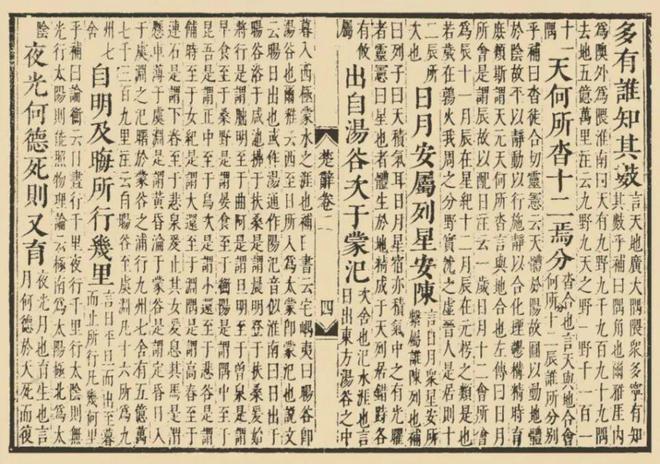 多有誰知其數
言天地廣大隅隈衆多寧有知
其數乎補曰隅角也爾雅厓内
爲隩外爲隈淮南曰天有九野九千九百九十九隅
去地五億萬里注云九野九天之野一野千一百一
十一
隅
天何所沓十二焉分
沓合也言天與地合會
何所十二辰誰所分別
乎補曰沓徒合切靈憲云天體於陽故圓以動地體
於陰故平以靜動以行施靜以合化堙鬱構精時育
庶類斯謂天元天何所沓言與地合也左傳曰日月
所會是謂辰故以配日注云一歲日月十二會所會
爲辰十一月辰在星紀十二月辰在元枵之類是也
若歲在鶉火我周之分野實沈之虛晉人是居則十
二辰所
次也
日月安屬列星安陳
言日月衆星安所
繫屬誰陳列也補
曰列子曰天積氣耳日月星宿亦積氣中之有光曜
者靈憲曰星也者體生於地精成于天列居錯跱各
有攸
屬
出自湯谷次于蒙汜
次舍也汜水涯也言
日出東方湯谷之中
楚辭卷
四
暮入西極蒙水之涯也補曰書云宅嵎夷曰暘谷即
湯谷也爾雅云西至日所入爲太蒙即蒙汜也說文
云暘日出也或作湯通作陽汜音似淮南曰日出于
暘谷浴于咸池拂于扶桑是謂晨明登于扶桑爰始
將行是謂朏明至于曲阿是謂旦明至于曾泉是謂
蚤食至于桑野是謂晏食至于衡陽是謂隅中至于
昆吾是謂正中至于鳥次是謂小還至于悲谷是謂
餔時至于女紀是謂大還至于淵隅是謂高舂至于
連石是謂下舂至于悲泉爰止其女爰息其馬是謂
懸車薄于虞淵是謂黃昏淪于蒙谷是謂定昏日入
于虞淵之汜曙於蒙谷之浦行九州七舍有五億萬
七千三百九里注云自暘谷至虞淵凡十六所爲九
州七
舍
自明及晦所行幾里
言日平旦而出至暮
而止所行凡幾何里
乎補曰論衡云日晝行千里夜行千里行太陰則無
光行太陽則能照物理論云極南爲太陽極北爲太
陰
夜光何德死則又育
夜光月也育生也言
月何德於天死而復